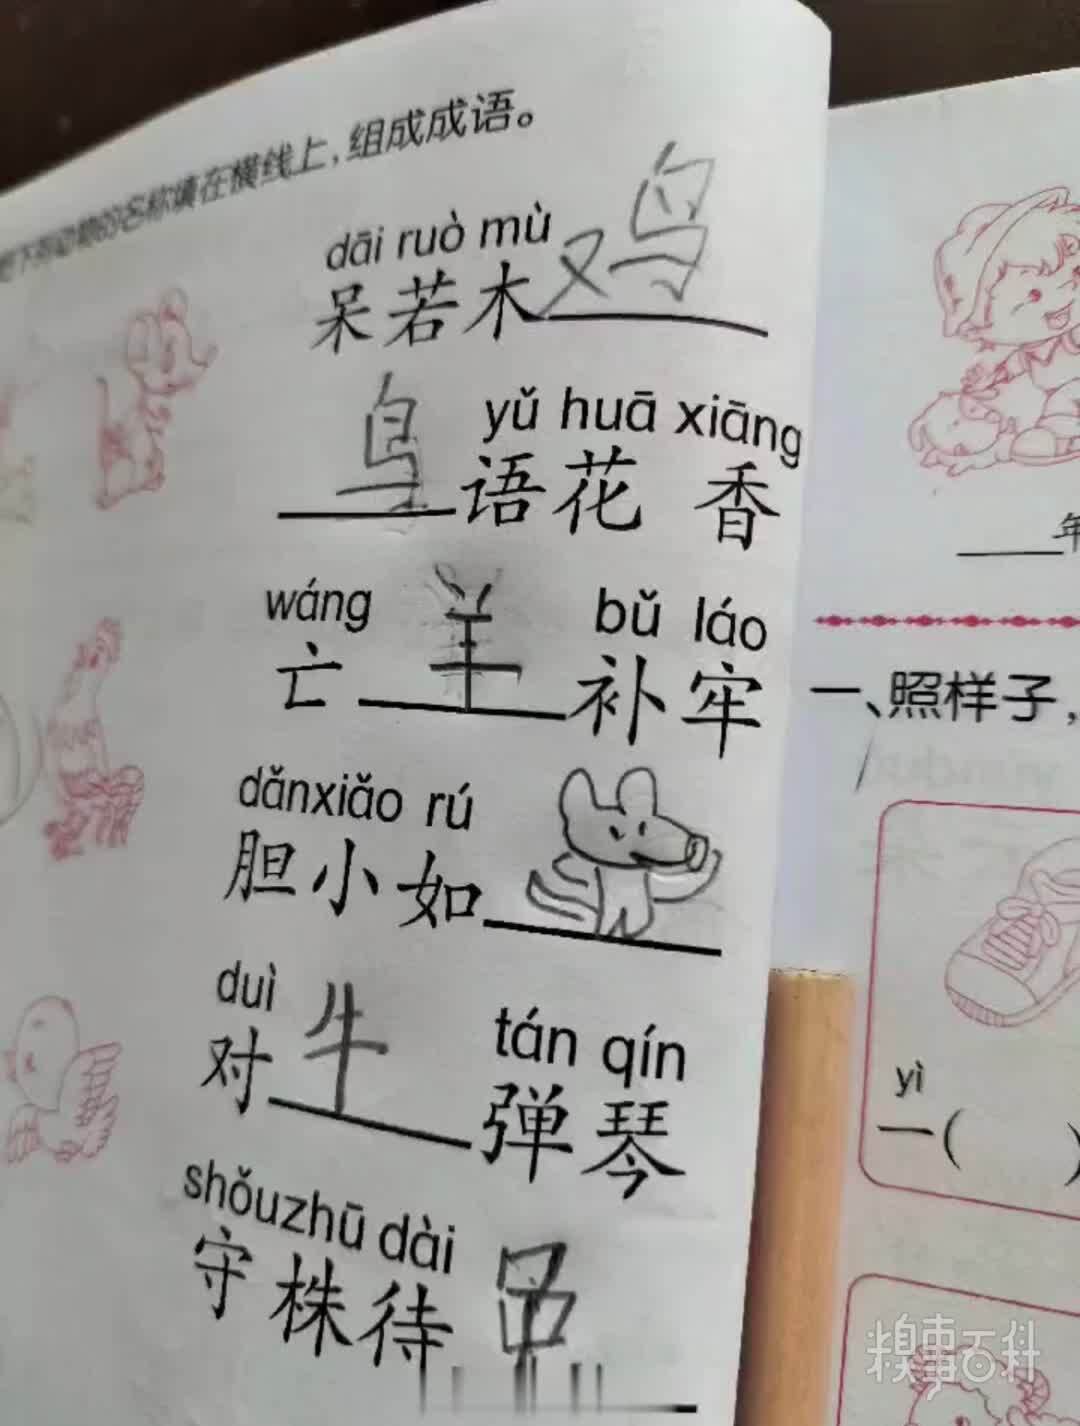 下列动物的名称填在横线上，组成成语。
dāi ruò mù
呆若木鸡
yǔ huā xiāng
鸟语花香
wáng bǔ láo
亡羊补牢
dǎnxiǎo rú
胆小如
duì tán qín
对牛弹琴
shǒuzhū dài
守株待
年
一、照样子，
yì
一( )
糗事百科